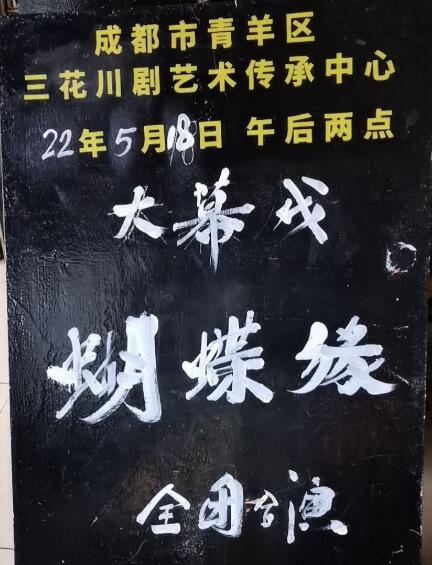 成都市青羊区
三花川剧艺术传承中心
22年5月18日 午后两点
大幕戏
蝴蝶缘
全团合演